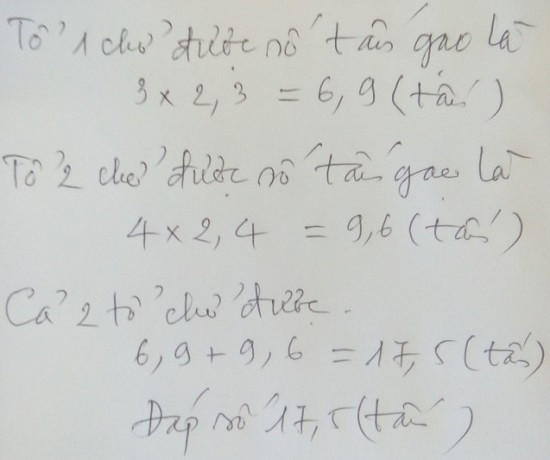 Tổ 1 chở được số tấn gạo là
3 x 2,3 = 6,9 (tấn)
Tổ 2 chở được số tấn gạo là
4 x 2,4 = 9,6 (tấn)
Cả 2 tổ chở được.
6,9 + 9,6 = 17,5 (tấn)
Đáp số 17,5 (tấn)